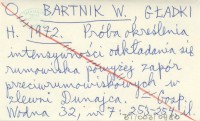 BARTNIK W., GŁADKI
H. 1972. Próba określenia
intensywności odkładania się
rumowiska powyżej zapór
przeciwrumowiskowych w
zlewni Dunajca. Gosp.
Wodna 32, nr 7: 251-254, il.